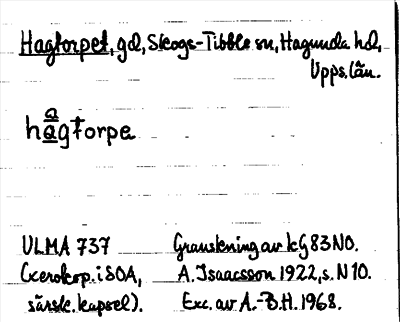 Hagtorpet, gd, Skogs-Tibble sn, Hagunda hd,
Upps. län.
hagtorpe
ULMA 737 Granskning av kG 83 NO.
(xerokop. i SOA, A. Isaacsson 1922, s. N 10.
särsk. kapsel). Exc. av A.-B.H. 1968.